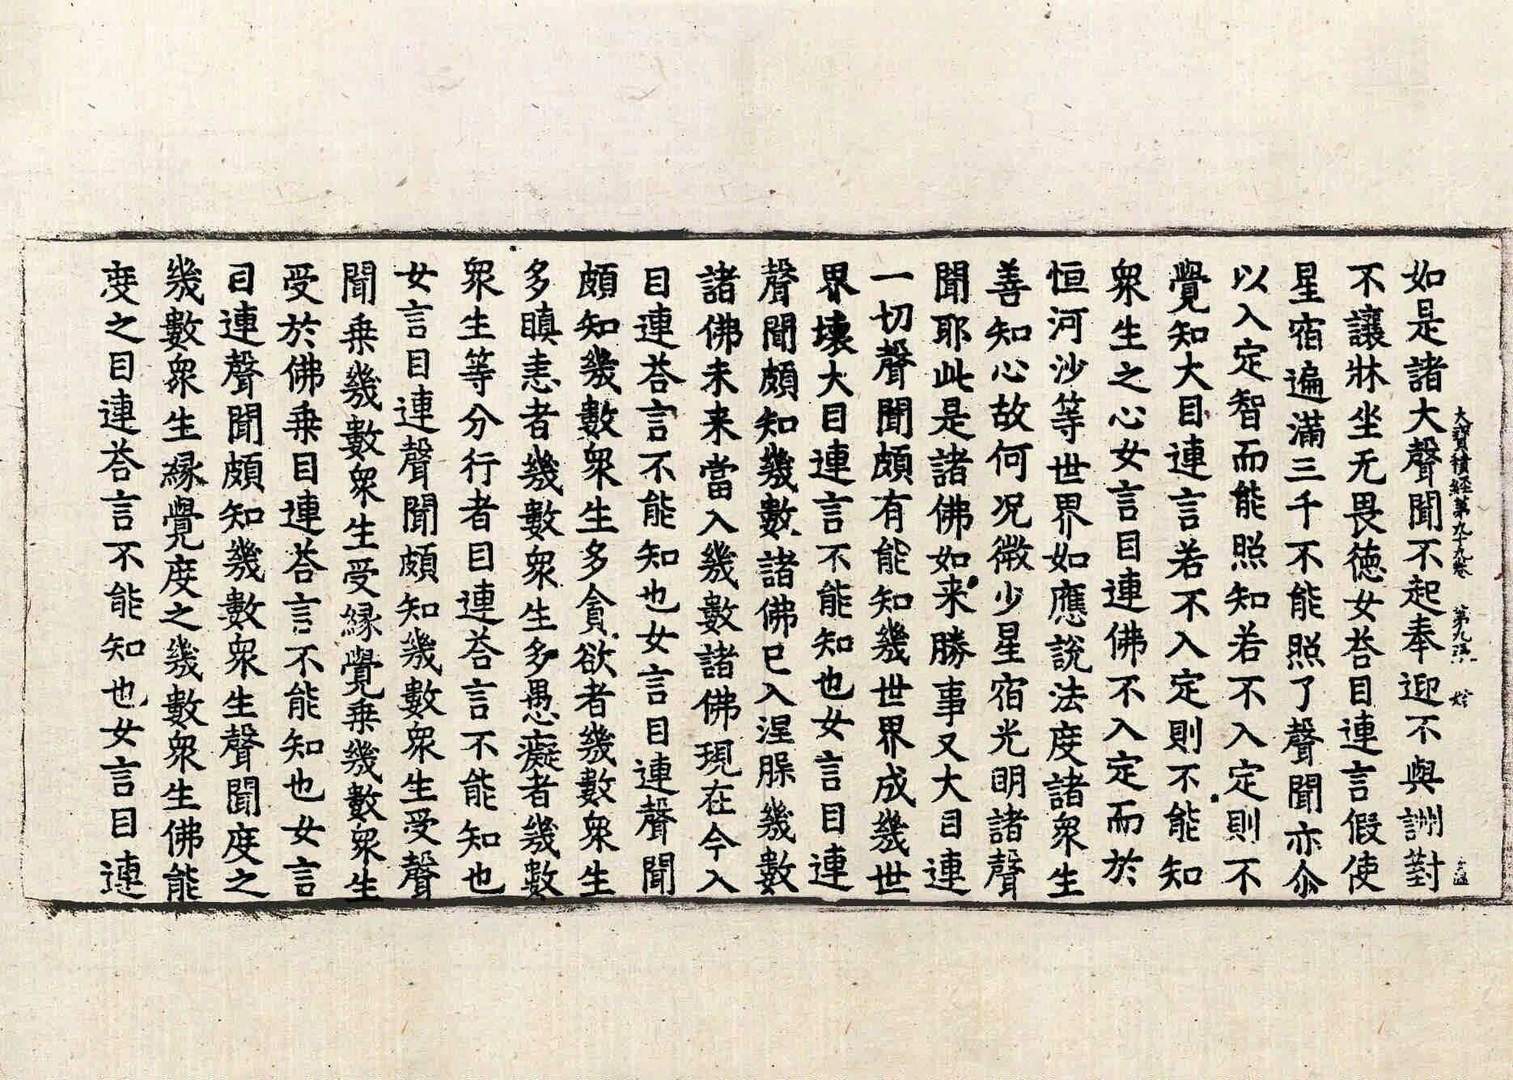 大寶積經第九十九卷 第九張
如是諸大聲聞不起奉迎不與詶對
不讓牀坐无畏德女荅目連言假使
星宿遍滿三千不能照了聲聞亦尒
以入定智而能照知若不入定則不
覺知大目連言若不入定則不能知
衆生之心女言目連佛不入定而於
恒河沙等世界如應說法度諸衆生
善知心故何況微少星宿光明諸聲
聞耶此是諸佛如来勝事又大目連
一切聲聞頗有能知幾世界成幾世
界壞大目連言不能知也女言目連
聲聞頗知幾數諸佛已入涅槃幾數
諸佛未来當入幾數諸佛現在今入
目連荅言不能知也女言目連聲聞
頗知幾數衆生多貪欲者幾數衆生
多瞋恚者幾數衆生多愚癡者幾數
衆生等分行者目連荅言不能知也
女言目連聲聞頗知幾數衆生受聲
聞乗幾數衆生受縁覺乗幾數衆生
受於佛乗目連荅言不能知也女言
目連聲聞頗知幾數衆生聲聞度之
幾數衆生縁覺度之幾數衆生佛能
度之目連荅言不能知也女言目連